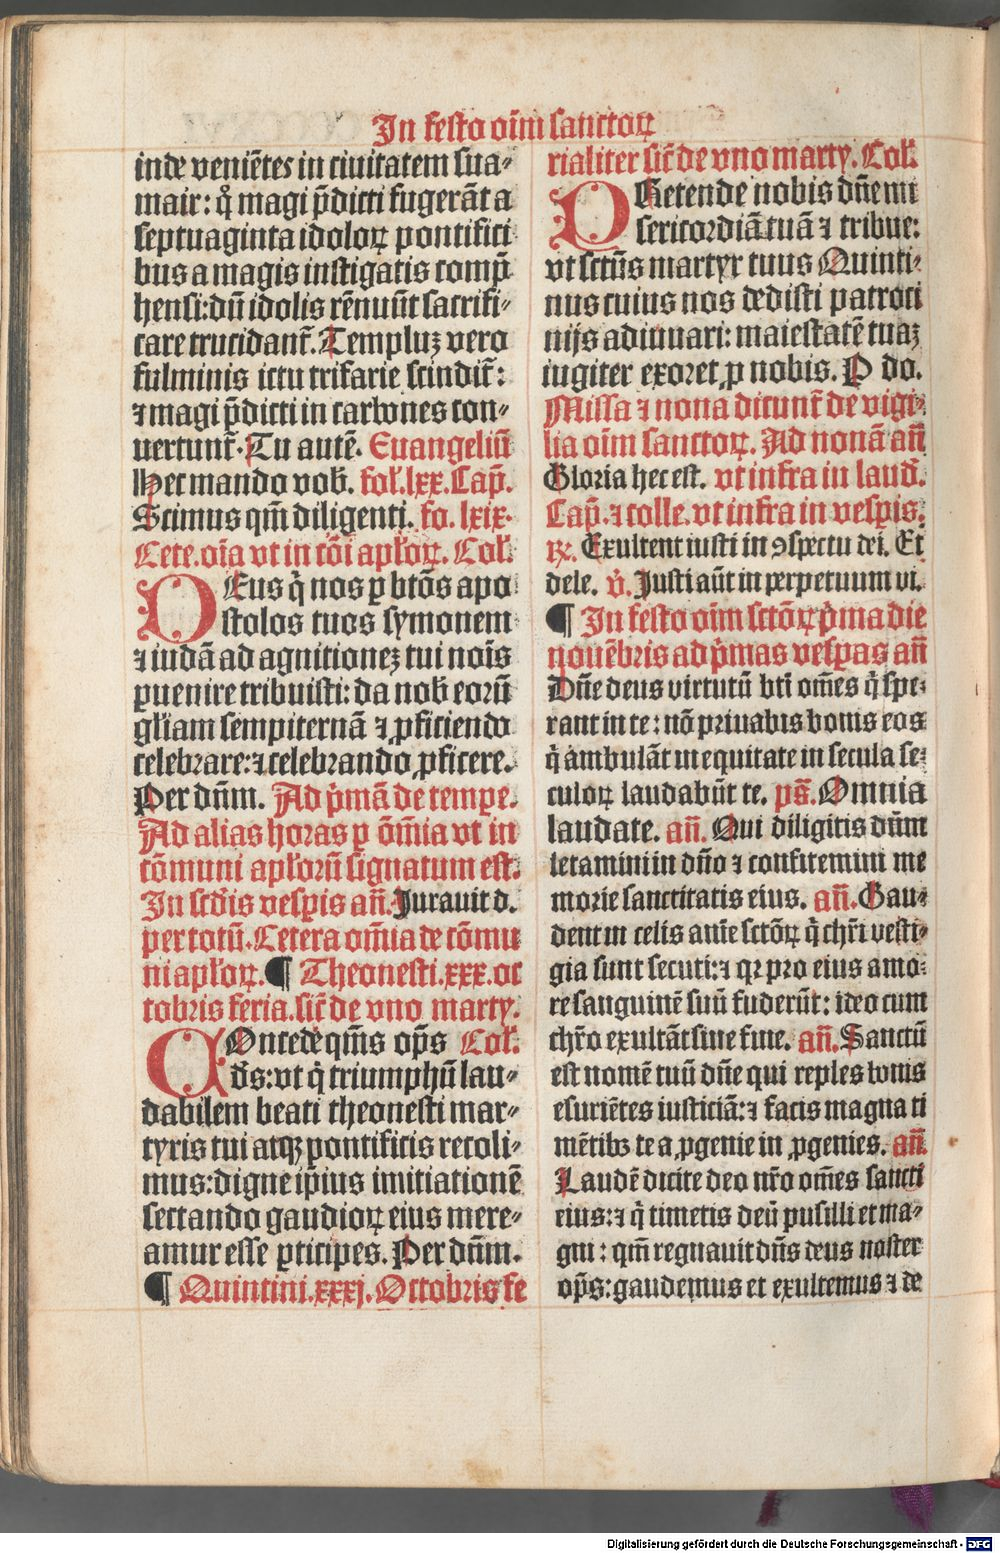 In festo oīm sanctoꝝ
inde veniētes in ciuitatem sua⸗
mair: q̇ magi p̄dicti fugerāt a
septuaginta idoloꝝ pontifici
bus a magis instigatis comp̄
hensi: dū idolis rēnuūt sacrifi⸗
care trucidant̄. Templuꝫ vero
fulminis ictu trifarie scindit̄:
ꝛ magi p̄dicti in carbones con⸗
uertunt̄. Tu autē. Euangeliū
Hec mando vob̄. fol̄. lxx. Cap̄.
Scimus qm̄ diligenti. fo. lxix.
Cete. oīa vt in cōi apl̄oꝝ. Col̄.
DEus q̇ nos ꝑ btōs apo
stolos tuos symonem
ꝛ iudā ad agnitioneꝫ tui noīs
ꝑuenire tribuisti: da nob̄ eorū
gl̄iam sempiternā ꝛ ꝓficiendo
celebrare: ꝛ celebrando ꝓficere.
Per dn̄m. Ad p̄mā de tempe.
Ad alias horas ꝑ ōm̄ia vt in
cōmuni apl̄orū signatum est.
In scd̄is vesꝑis an̄. Jurauit d.
per totū. Cetera om̄ia de cōmu
ni apl̄oꝝ. ¶ Theonesti. xxx. oc
tobris feria. sic̄ de vno marty.
COncede qm̄s op̄s Col̄.
ds̄: vt q̇ triumphū lau⸗
dabilem beati theonesti mar⸗
tyris tui atqꝫ pontificis recoli⸗
mus: digne ip̄ius imitiationē
sectando gaudioꝝ eius mere⸗
amur esse ꝑticipes. Per dn̄m.
¶ Quintini. xxxj. Octobris fe
rialiter sic̄ de vno marty. Col̄.
PRetende nobis dn̄e mi
sericordiā tuā ꝛ tribue:
vt sctūs martyr tuus Quinti⸗
nus cuius nos dedisti patroci
nijs adiuuari: maiestatē tuaꝫ
iugiter exoret ꝓ nobis. P do.
Missa ꝛ nona dicunt̄ de vigi⸗
lia oīm sanctoꝝ. Ad nonā an̄
Gloria hec est. vt infra in laud̄.
Cap̄. ꝛ colle. vt infra in vesꝑis.
℞. Exultent iusti in ꝯspectu dei. Et
dele. v̇. Justi aūt in perpetuum vi.
¶ In festo oīm sctōꝝ p̄ma die
nouēbris ad p̄mas vesꝑas an̄
Dn̄e deus virtutū bt̄i om̄es q̇ spe⸗
rant in te: nō priuabis bonis eos
q̇ ambulāt in equitate in secula se⸗
culoꝝ laudabūt te. ps̄. Omnia
laudate. an̄. Qui diligitis dn̄m
letamini in dn̄o ꝛ confitemini me
morie sanctitatis eius. an̄. Gau⸗
dent in celis anīe sctōꝝ q̇ chr̄i vesti⸗
gia sunt secuti: ꝛ qꝛ pro eius amo⸗
re sanguinē suū fuderūt: ideo cum
chr̄o exultāt sine fine. an̄. Sanctū
est nomē tuū dn̄e qui reples bonis
esuriētes iusticiā: ꝛ facis magna ti
mētibꝫ te a ꝓgenie in ꝓgenies. an̄.
Laudē dicite deo nr̄o om̄es sancti
eius: ꝛ q̇ timetis deū pusilli et ma⸗
gni: qm̄ regnauit dn̄s deus noster
op̄s: gaudemus et exultemus ꝛ de
Digitalisierung gefördert durch die Deutsche Forschungsgemeinschaft - DFG